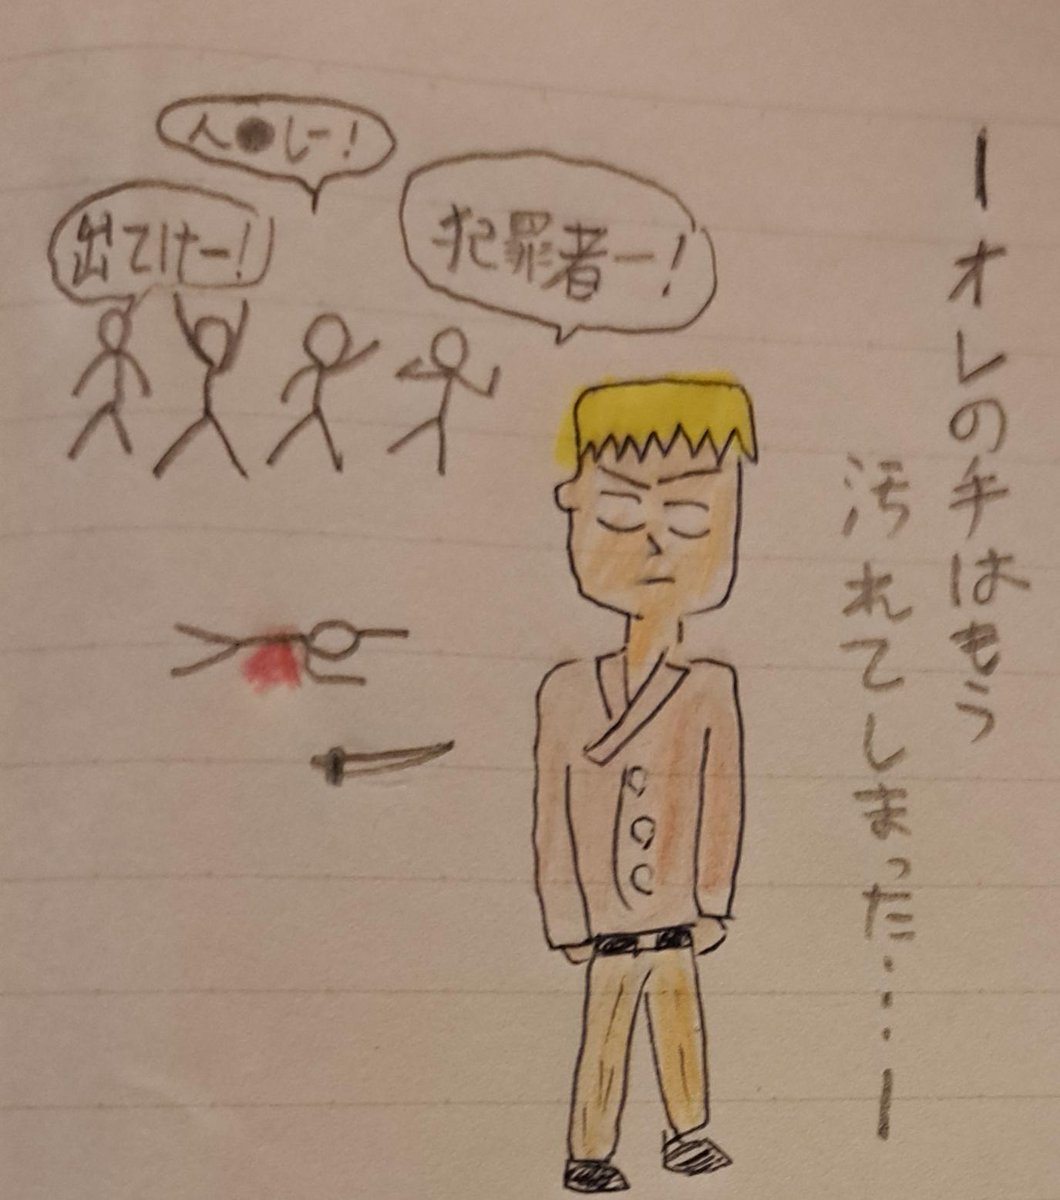 ―オレの手はもう
汚れてしまった……―
人●しー!
出てけー!
犯罪者ー!